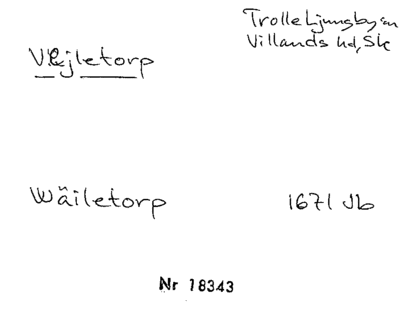 Vejletorp
Trolle Ljungby sn
Villands hd, Sk
Wäiletorp
1671 Jb
Nr 18343